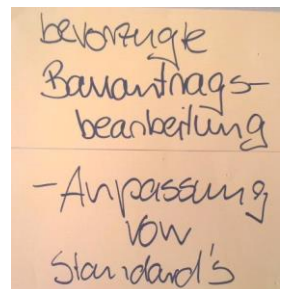 bevorzugte
Bauantrags-
bearbeitung
- Anpassung
von
Standard's